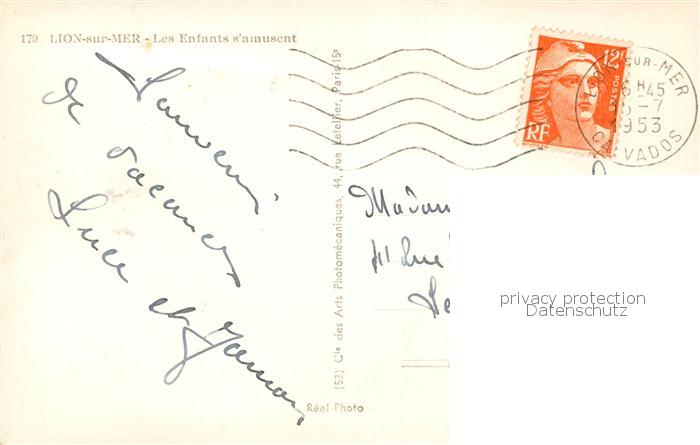 179 LION-sur-MER - Les Enfants s'amusent
Souvenir
de vacances
Luce et
(52) Cie des Arts Photomécaniques, 44, rue Letellier, Paris-15e
Réal-Photo
12F
POSTES
RF
SUR-MER
H45
-7
1953
CALVADOS
Madam
41 Rue
privacy protection
Datenschutz